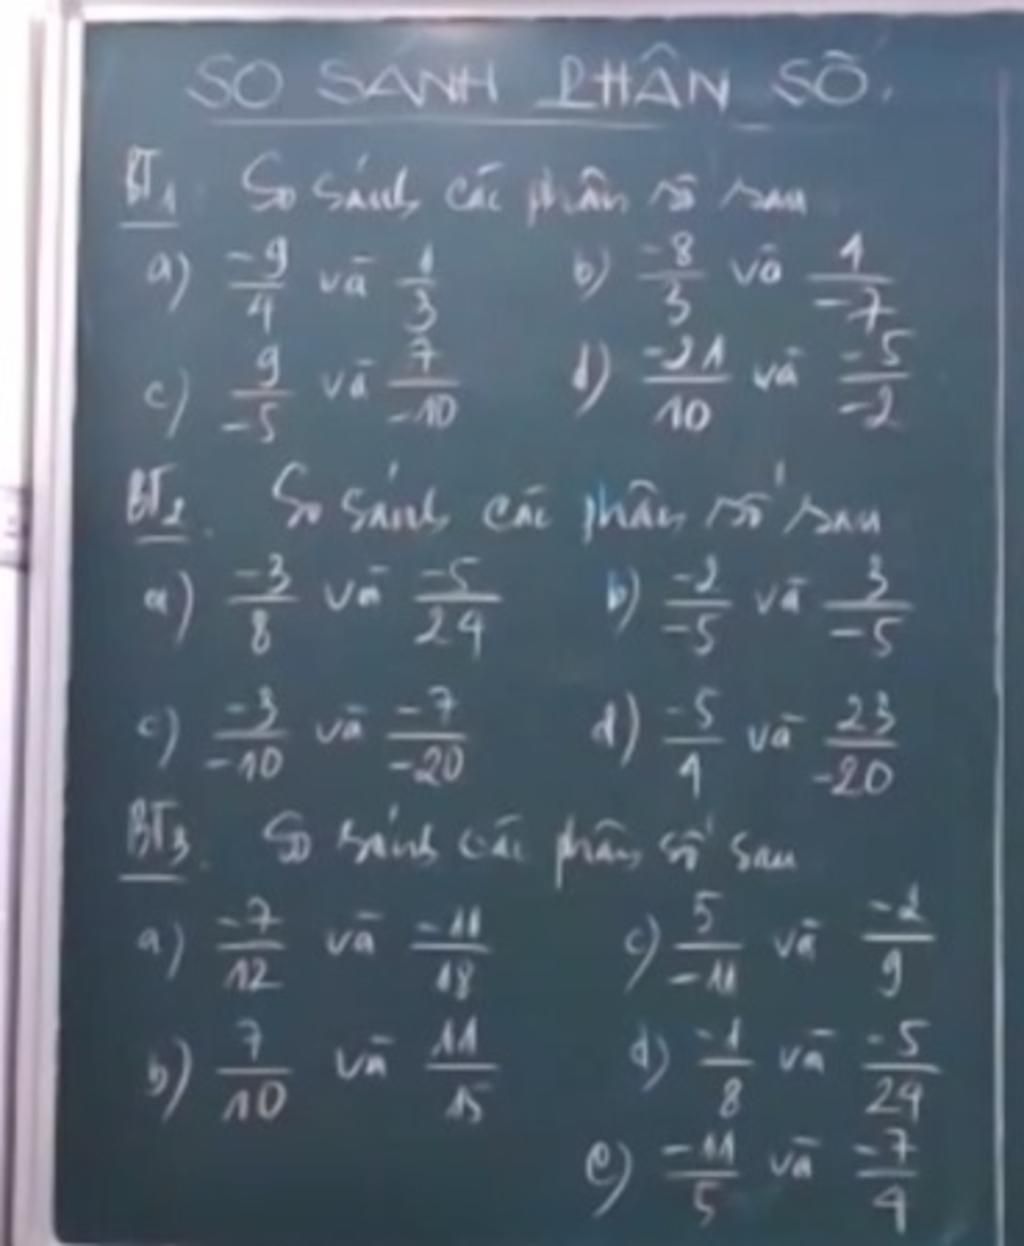 SO SÁNH PHÂN SỐ.
BT1 So sánh các phân số sau
a) -9/4 và 1/3 b) -8/3 và 1/-7
c) 9/-5 và 7/-10 d) -21/10 và -5/-2
BT2. So sánh các phân số sau
a) -3/8 và -5/24 b) -2/-5 và 3/-5
c) -3/-10 và -7/-20 d) -5/4 và 23/-20
BT3. So sánh các phân số sau
a) -7/12 và -11/18 c) 5/-11 và -2/9
b) 7/10 và 11/15 d) -1/8 và -5/24
e) -11/5 và -7/4